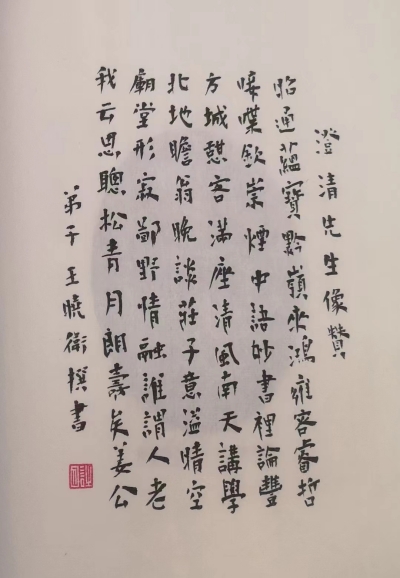 澄清先生像贊
昭通蘊寶黔嶺來鴻雍容睿哲
唼喋欽崇煙中語妙書裡論豐
方城憩客滿座清風南天講學
北地瞻翁晚談莊子意溢晴空
廟堂形寂鄙野情融誰謂人老
我云思聰松青月朗壽矣姜公
弟子王曉衛撰書